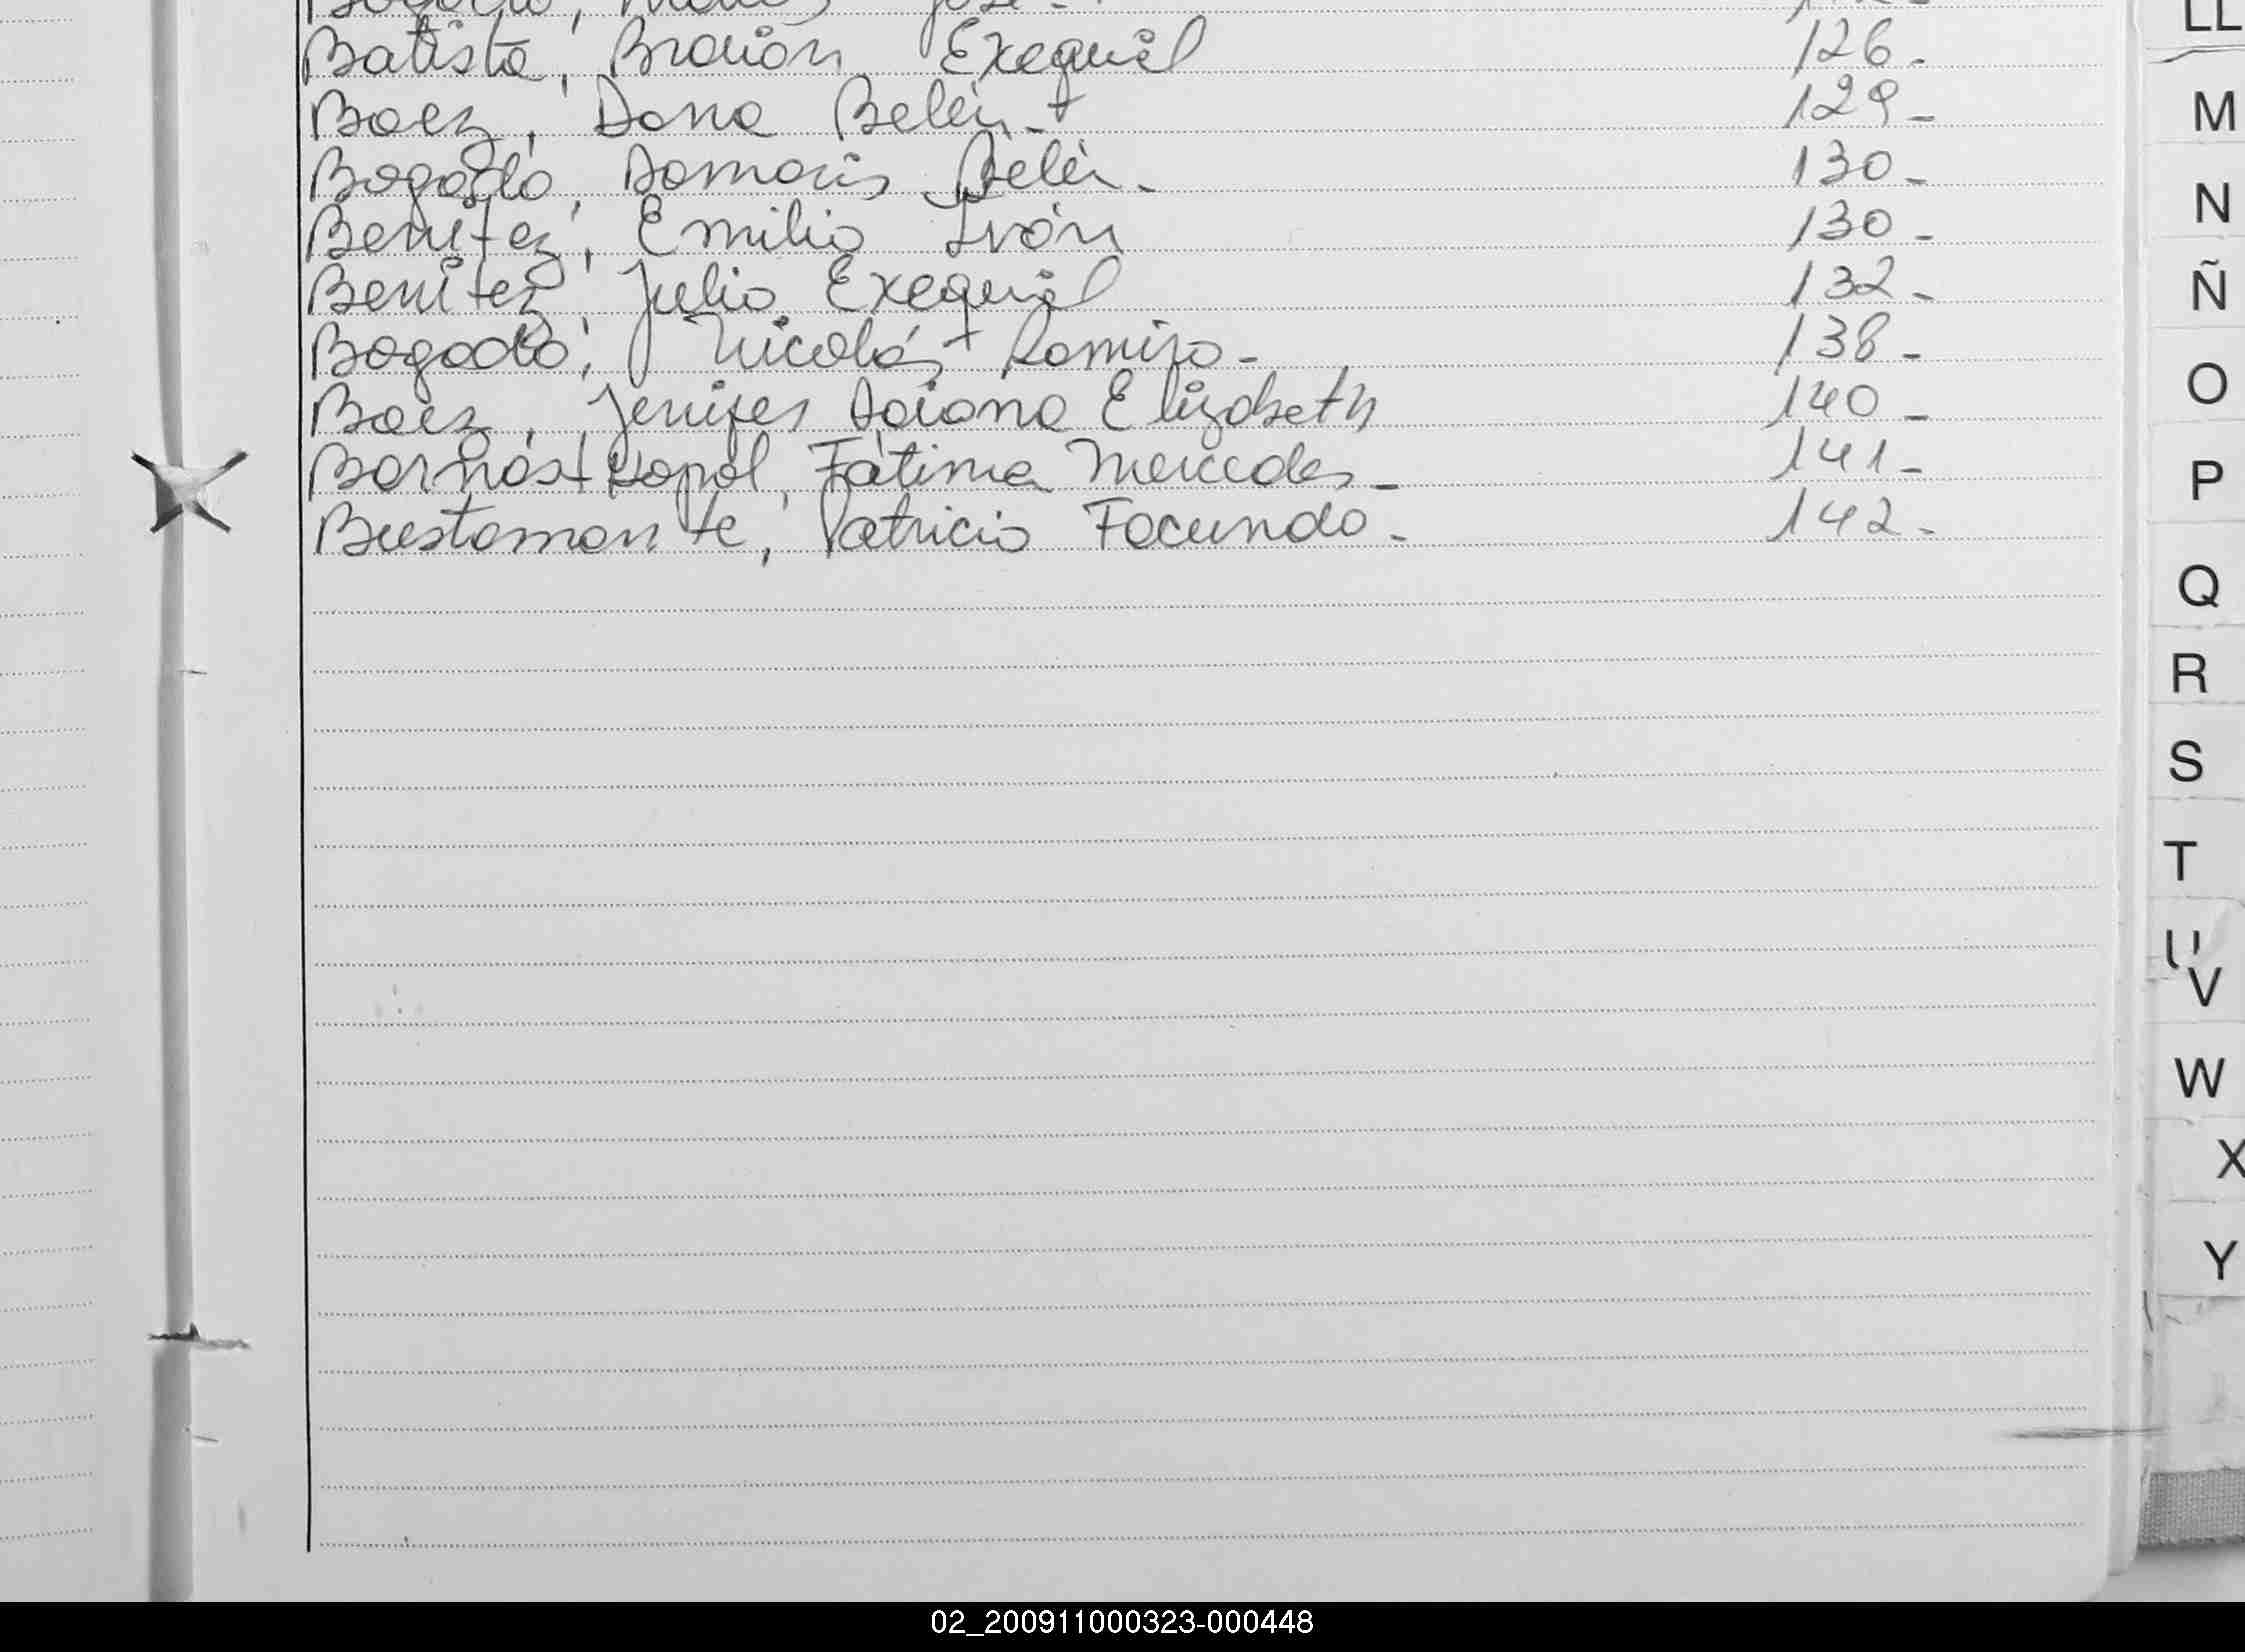 Batista, Braian Exequiel 126-
Baez, Dana Belén- 129-
Bogado, Damaris Belén- 130-
Benitez, Emilio Iván 130-
Benitez, Julio Exequiel 132-
Bogado, Nicolás Ramiro- 138-
Baez, Jenifer Daiana Elizabeth 140-
Fátima Mercedes- 141-
Bustamante, Patricio Facundo- 142-
LL
M
N
Ñ
O
P
Q
R
S
T
U
V
W
X
Y
02_200911000323-000448